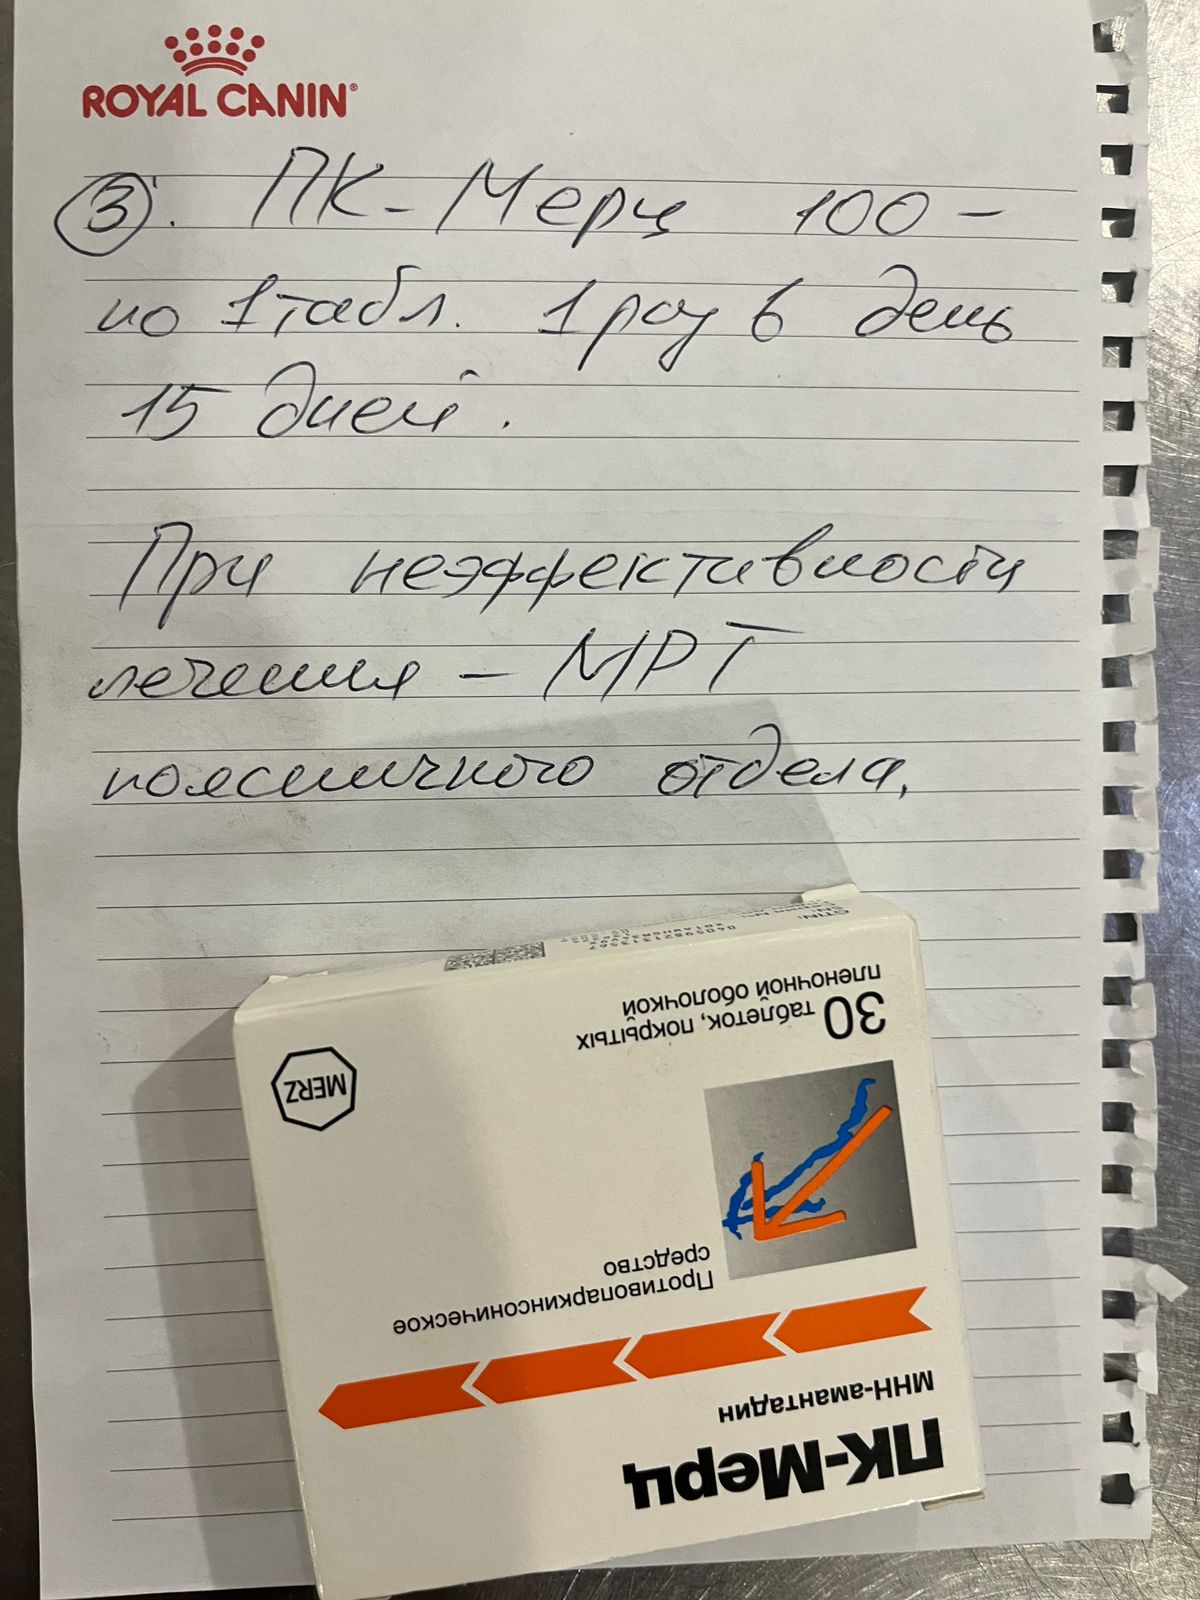 ROYAL CANIN®
3. ПК-Мерц 100 -
по 1 табл. 1 раз в день
15 дней.
При неэффективности
лечения - МРТ
поясничного отдела.
GTIN:
30 таблеток, покрытых
пленочной оболочкой
MERZ
Противопаркинсоническое
средство
МНН-амантадин
ПК-Мерц